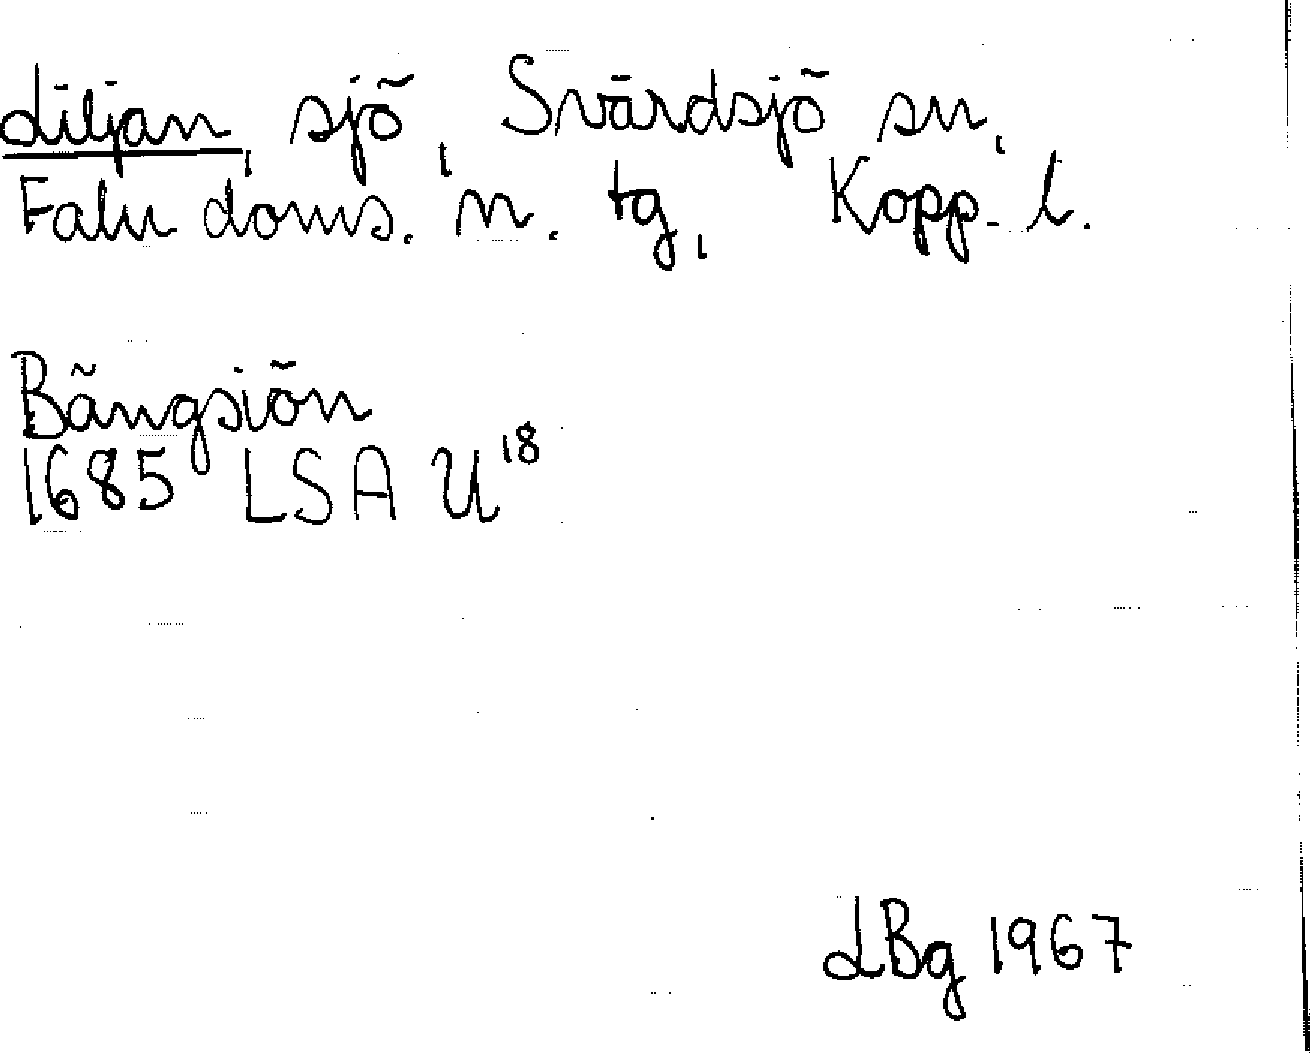 Liljan, sjö, Svärdsjö sn,
Falu doms. n. tg, Kopp. l.
Bängsiön
1685 LSA U18
LBg 1967